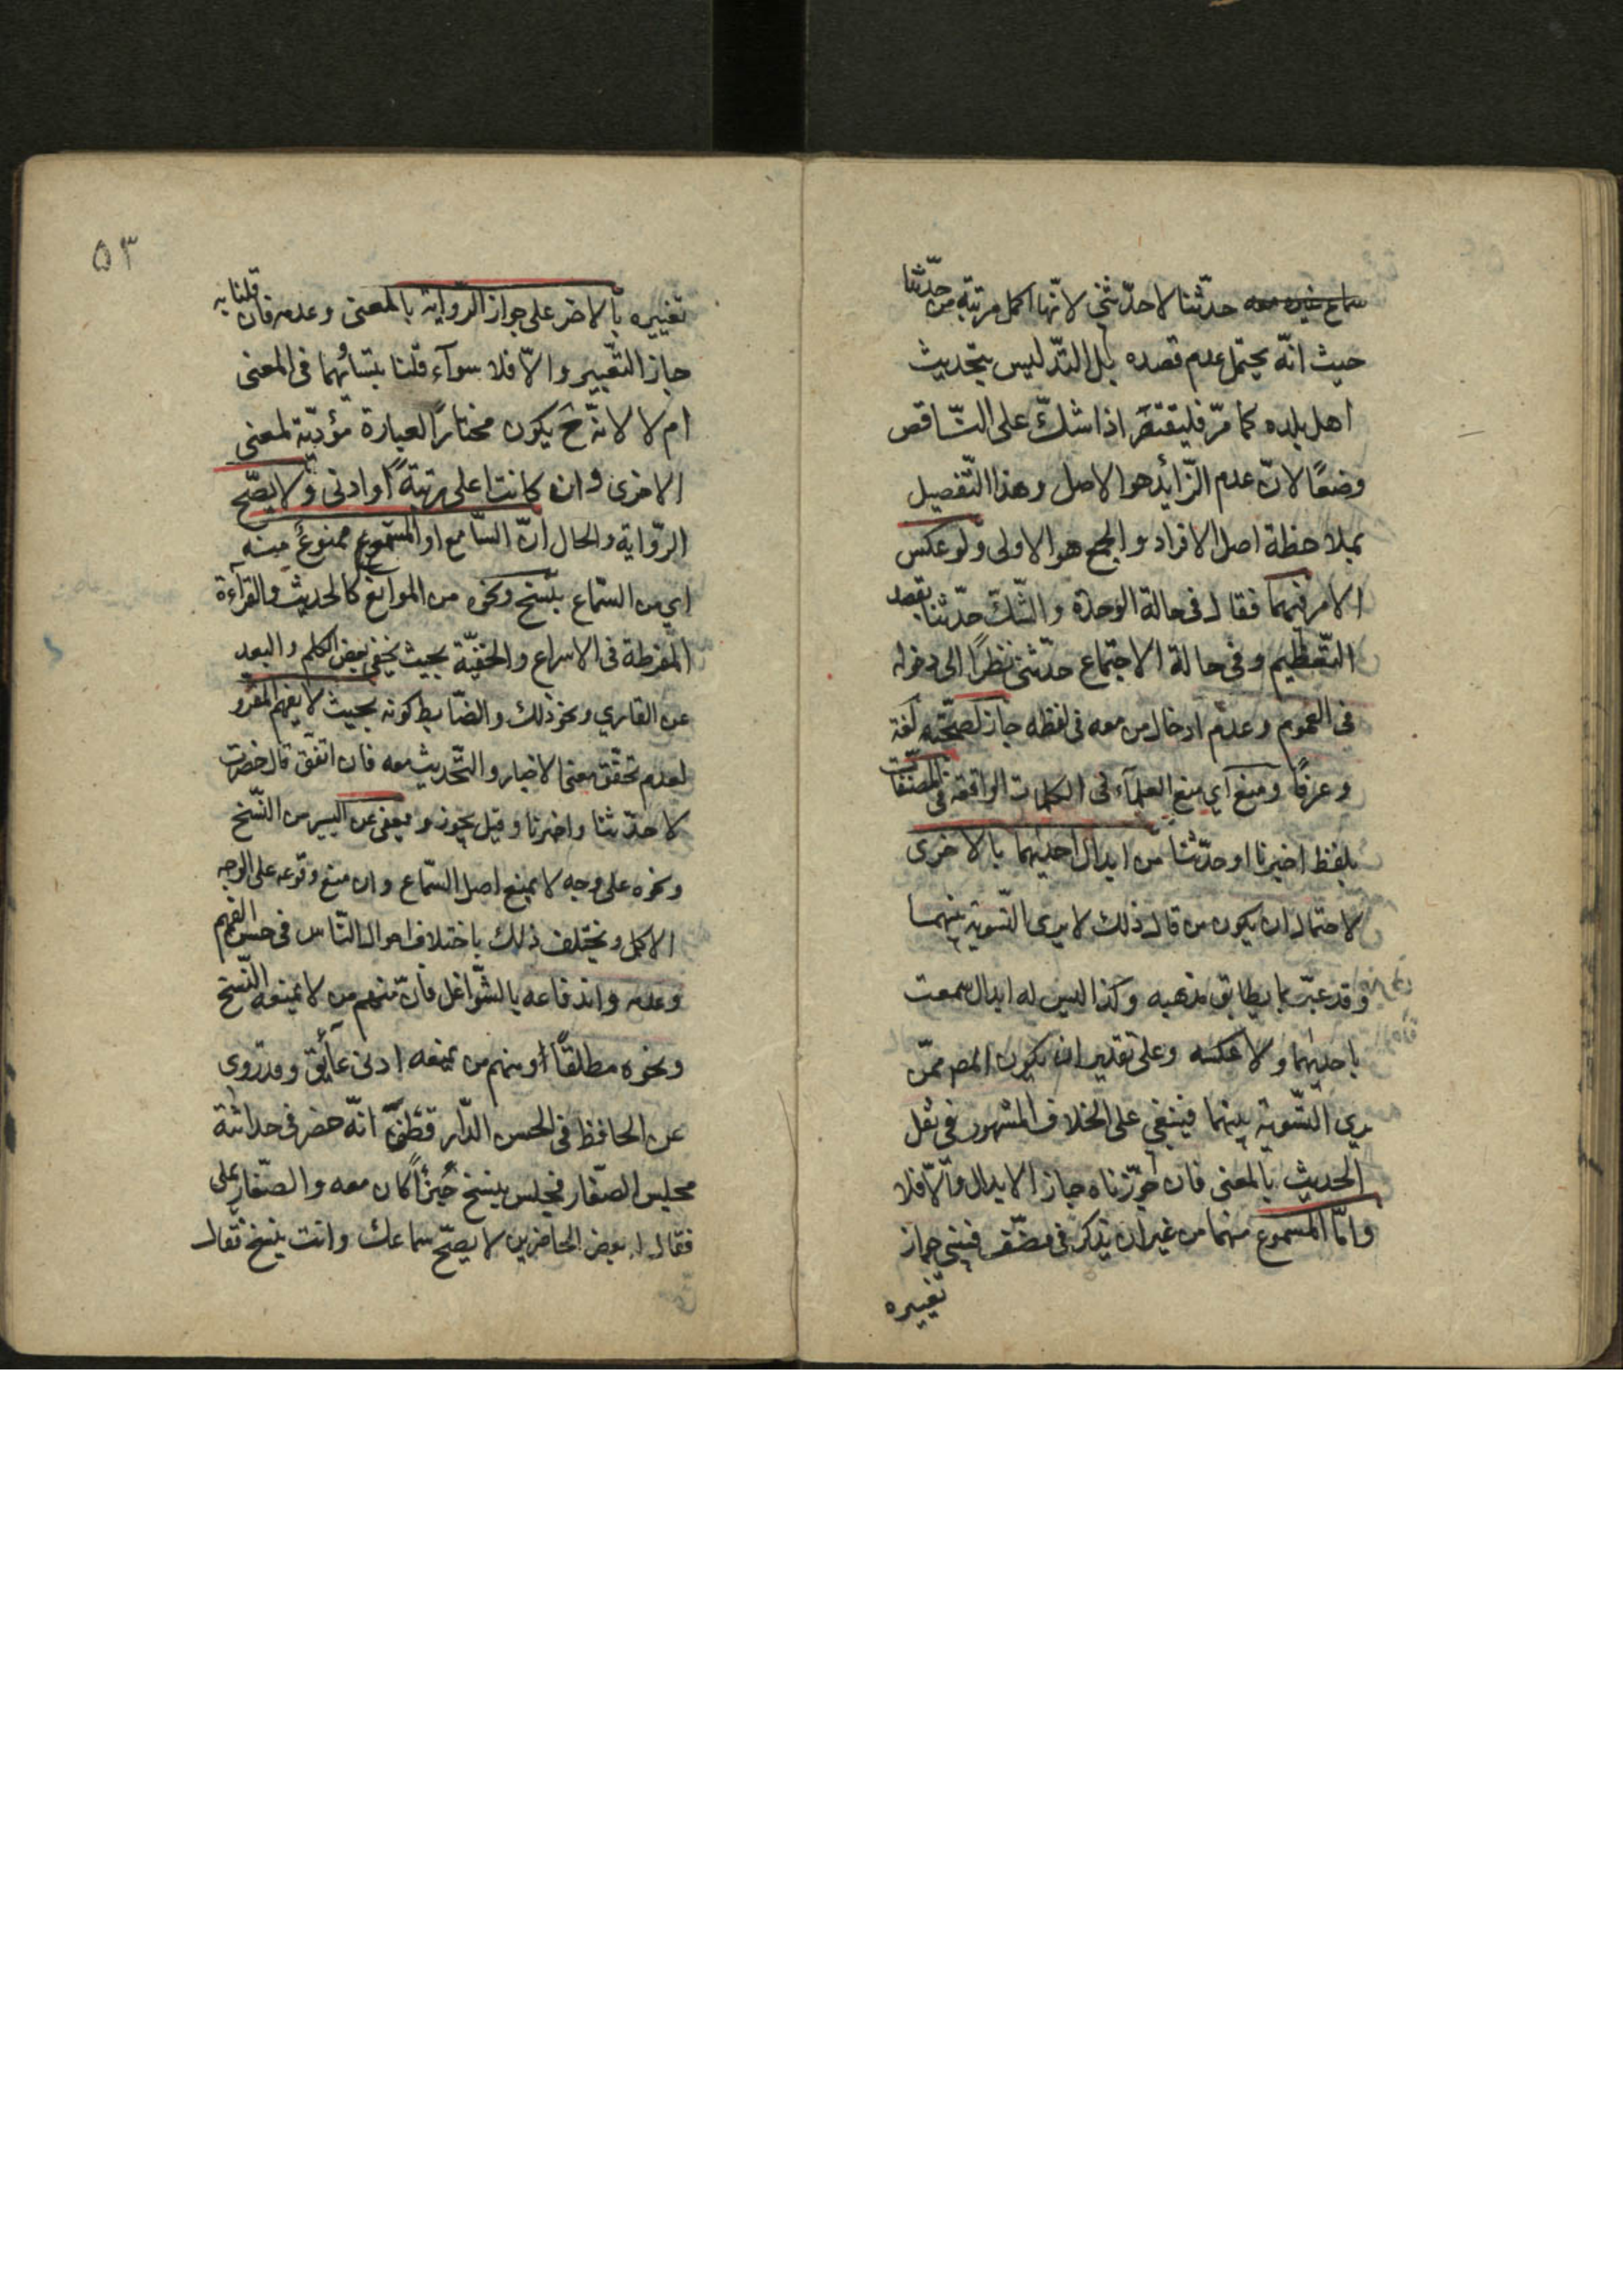 سماع غيره معه حدّثنا لا حدّثني لانّها اكمل مرتبة من حدّثنا
حيث انّه يحتمل عدم قصده بل التدليس بتحديث
اهل بلده كما مرّ فليقتصر اذا شكّ على النّاقص
وضعًا لانّ عدم الزّائد هو الاصل وهذا التّفصيل
بملاحظة اصل الافراد والجمع هو الاولى ولو عكس
الامر فيهما فقال في حالة الوحدة والشكّ حدّثنا بقصد
التّعظيم وفي حالة الاجتماع حدّثني نظرًا الى دخوله
في العموم وعدم ادخال من معه في لفظه جاز لصحّته لغة
وعرفًا ومنع اي منع العلمآء في الكلمات الواقعة في المصنّفات
بلفظ اخبرنا او حدّثنا من ابدال احديهما بالاخرى
لاحتمال ان يكون من قال ذلك لا يرى التّسوية بينهما
وقد عبّر بما يطابق مذهبه وكذا ليس له ابدال سمعت
باحديهما ولا عكسه وعلى تقدير ان يكون المص ممّن
يرى التّسوية بينهما فينبغي على الخلاف المشهور في نقل
الحديث بالمعنى فان جوّزناه جاز الابدال والّا فلا
وامّا المسموع منهما من غير ان يذكر في مصنّف فيبنى جواز
تغييره
٥٣
تغييره بالاخر على جواز الرّواية بالمعنى وعدمه فان قلنا به
جاز التغيير والّا فلا سوآء قلنا بتساويهما في المعنى
ام لا لانّه ح يكون مختارًا لعبارة مؤدّية لمعنى
الاخرى وان كانت اعلى مرتبة او ادنى ولا يصّح
الرّواية والحال انّ السّامع او المستمع ممنوع منه
اي من السّماع بنسخ ونحوه من الموانع كالحديث والقرآءة
المفرطة في الاسراع والخفيّة بحيث يخفى بعض الكلم والبعد
عن القاري ونحو ذلك والضّابط كونه بحيث لا يفهم المقرو
لعدم تحقّق معنى الاخبار والتّحديث معه فان اتّفق قال حضرت
لا حدّثنا واخبرنا وقيل يجوز ويعفى عن اليسير من النّسخ
ونحوه على وجه لا يمنع اصل السّماع وان منع وقوعه على الوجه
الاكمل ويختلف ذلك باختلاف احوال النّاس في حسن الفهم
وعدمه واندفاعه بالشّواغل فانّ منهم من لا يمنعه النّسخ
ونحوه مطلقًا ومنهم من يمنعه ادنى عآئق وقد روي
عن الحافظ في الحسن الدّار قطنى انّه حضر في حداثته
مجلس الصفّار فجلس ينسخ جزءًا كان معه والصّفار يملى
فقال له بعض الحاضرين لا يصحّ سماعك وانت ينسخ فقال